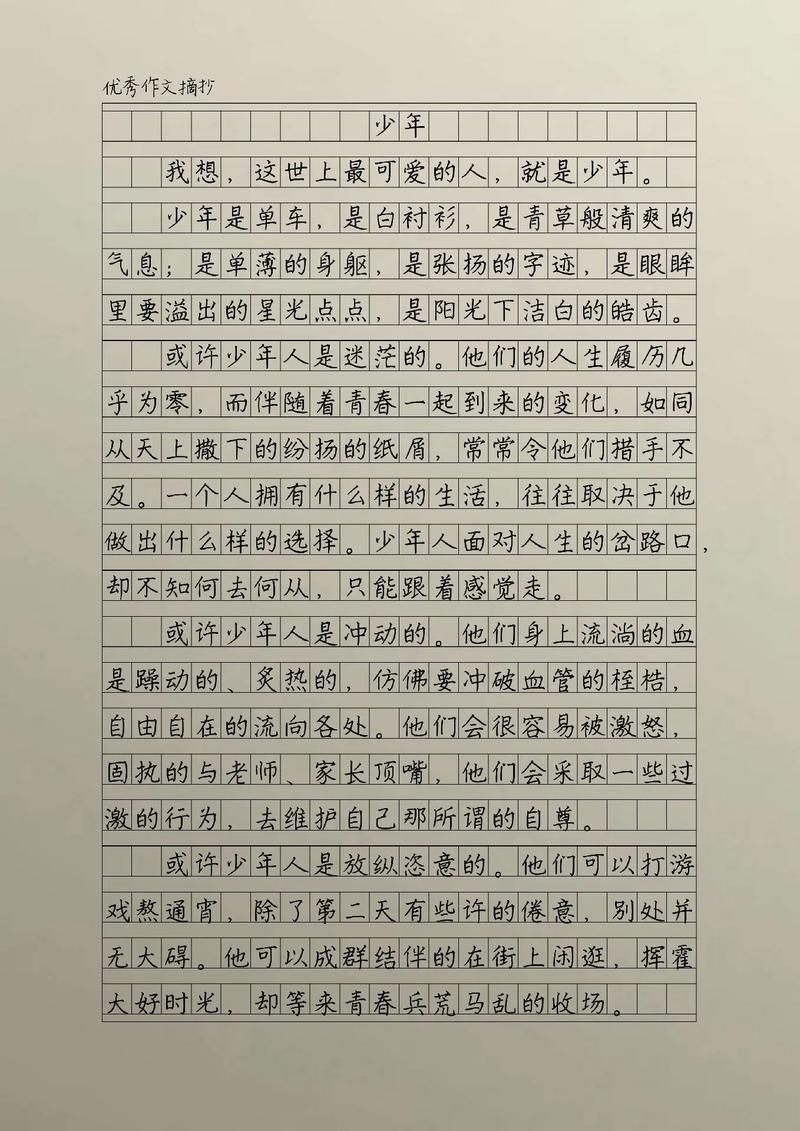 优秀作文摘抄
少年
我想，这世上最可爱的人，就是少年。
少年是单车，是白衬衫，是青草般清爽的
气息；是单薄的身躯，是张扬的字迹，是眼眸
里要溢出的星光点点，是阳光下洁白的皓齿。
或许少年人是迷茫的。他们的人生履历几
乎为零，而伴随着青春一起到来的变化，如同
从天上撒下的纷扬的纸屑，常常令他们措手不
及。一个人拥有什么样的生活，往往取决于他
做出什么样的选择。少年人面对人生的岔路口，
却不知何去何从，只能跟着感觉走。
或许少年人是冲动的。他们身上流淌的血
是躁动的、炙热的，仿佛要冲破血管的桎梏，
自由自在的流向各处。他们会很容易被激怒，
固执的与老师、家长顶嘴，他们会采取一些过
激的行为，去维护自己那所谓的自尊。
或许少年人是放纵恣意的。他们可以打游
戏熬通宵，除了第二天有些许的倦意，别处并
无大碍。他可以成群结伴的在街上闲逛，挥霍
大好时光，却等来青春兵荒马乱的收场。